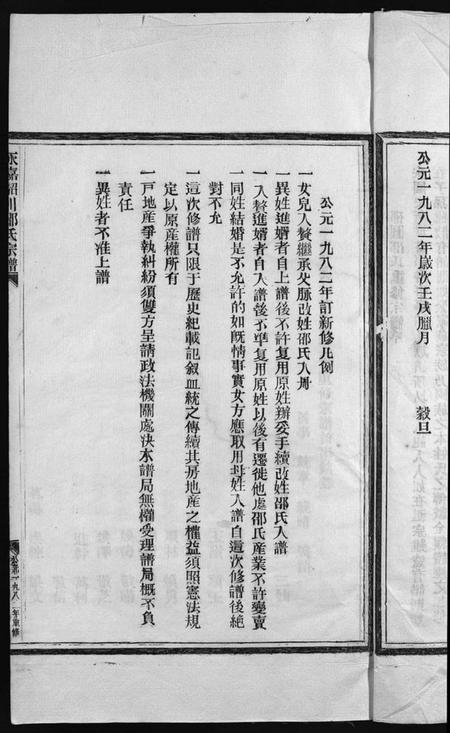 公元一九八二年歲次壬戌臘月　　　穀旦
公元一九八二年訂新修凡例
一女兒入贅繼承父脉改姓邵氏入周
一異姓進婿者自上譜後不許复用原姓辦妥手續改姓邵氏入譜
一入贅進婿者自入譜後不準复用原姓以後有遷徙他處邵氏産業不許變賣
一同姓結婚是不允許的如既情事實女方應取用母姓入譜自這次修譜後絶
對不允
一這次修譜只限于歷史紀載記叙血統之傳續其房地産之權益須照憲法規
定以原産權所有
一戸地産爭執糾紛須雙方呈請政法機關處决本譜局無權受理譜局概不負
責任
一異姓者不准上譜
永嘉紹川邵氏宗譜
公元一九八二年重修